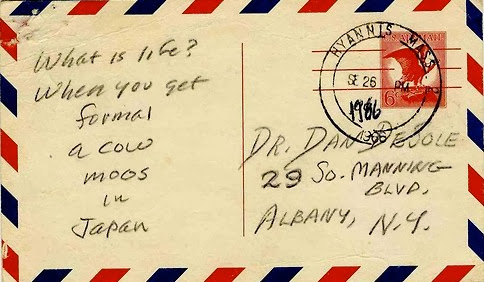 What is life?
When you get
formal
a cow
moos
in
Japan
HYANNIS MASS
SE 26
PM
1986
1986
U.S. AIR MAIL
6¢
DR. DAN DeSOLE
29 So. MANNING
BLVD.
ALBANY, N.Y.